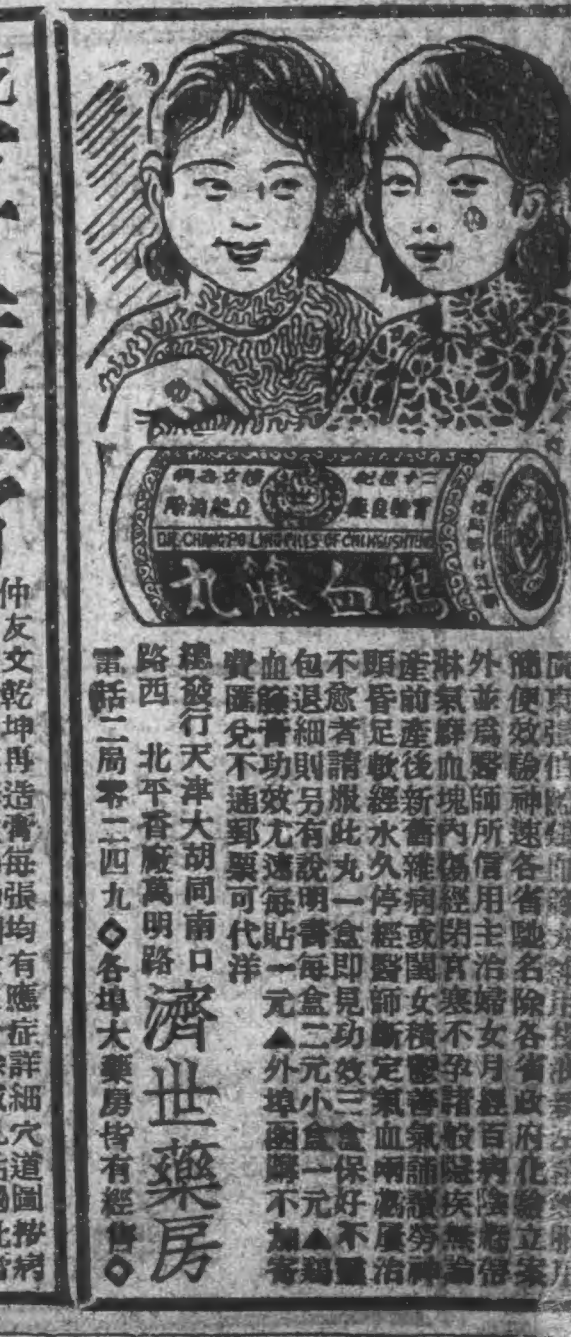 簡便效驗神速各省馳名除各省政府化驗立案
外並爲醫師所信用主治婦女月經百病陰
淋氣癖血塊內傷經閉宮寒不孕諸般隱疾無論
產前產後新舊雜病或閨女積鬱善氣誦讀勞神
頭昏足軟經水久停經醫師斷定氣血兩虧屢治
不愈者請服此丸一盒即見功效三盒保好不靈
包退細則另有說明書每盒二元小盒一元▲鷄
血籐膏功效尤速每貼一元▲外埠函購不加寄
費匯兌不通郵票可代洋
總發行天津大胡同南口
路西 北平香廠萬明路
濟世藥房
電話二局零二四九◇各埠大藥房皆有經售◇
鷄血籐丸
仲友文乾坤再造膏每張均有應症詳細穴道圖按病